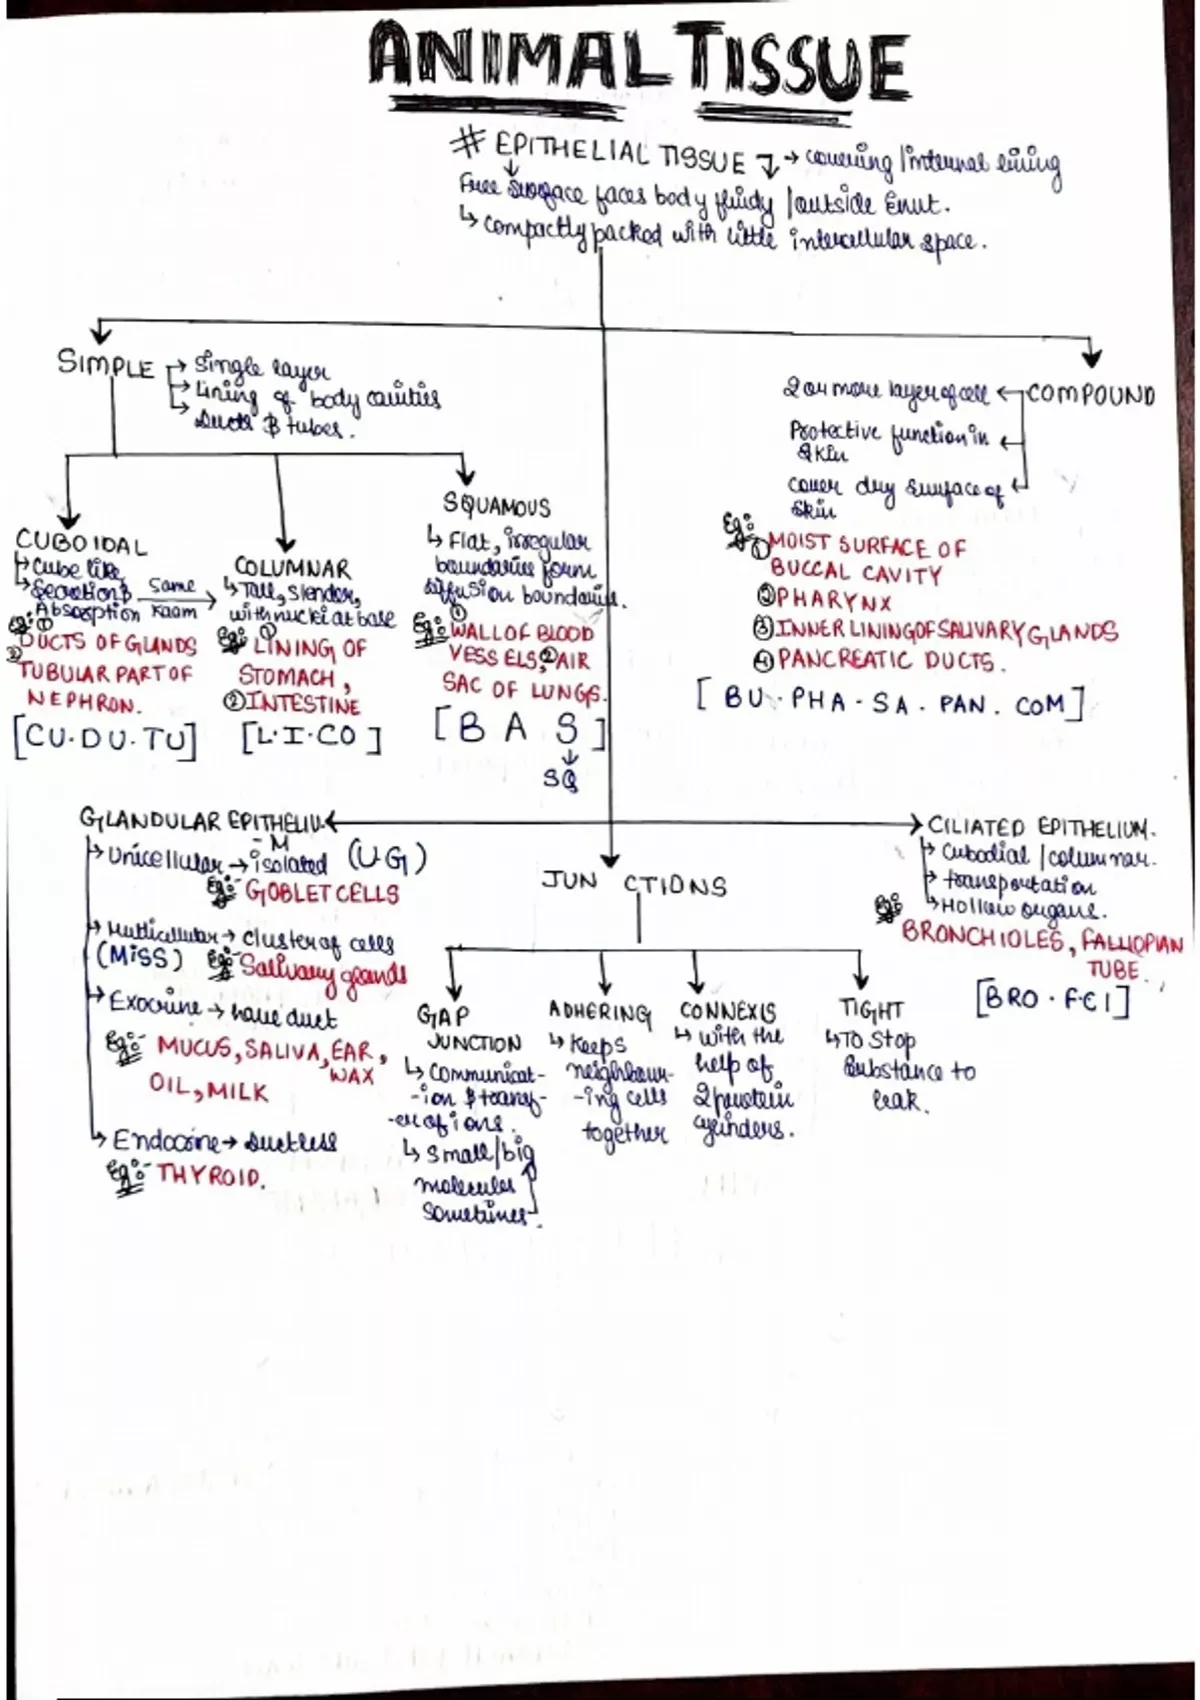 ANIMAL TISSUE
# EPITHELIAL TISSUE → covering / internal lining
Free surface faces body fluidy / outside Envt.
↳ Compactly packed with little intercellular space.
SIMPLE → Single layer
→ Lining of body cavities
↳ Ducts & tubes.
COMPOUND
2 or more layer of cell
Protective function in
Skin
cover dry surface of
Skin
Eg:
① MOIST SURFACE OF
BUCCAL CAVITY
② PHARYNX
③ INNER LINING OF SALIVARY GLANDS
④ PANCREATIC DUCTS.
[ BU. PHA. SA. PAN. COM]
CUBOIDAL
→ Cube like
↳ Secretion &
Absorption
Same
Kaam
Eg: ①
DUCTS OF GLANDS
②
TUBULAR PART OF
NEPHRON.
[CU.DU.TU]
COLUMNAR
↳ Tall, Slender,
with nuclei at base
Eg: ①
LINING OF
STOMACH,
② INTESTINE
[L.I.CO]
SQUAMOUS
↳ Flat, irregular
boundaries form
diffusion boundaries.
Eg: ①
WALL OF BLOOD
VESSELS, ② AIR
SAC OF LUNGS.
[B A S]
↓
SQ
GLANDULAR EPITHELIU
-M
→ Unicellular → isolated (U G)
Eg:- GOBLET CELLS
→ Multicellular → cluster of cells
(MISS) Eg:- Salivary glands
→ Exocrine → have duct
Eg:- MUCUS, SALIVA, EAR,
WAX
OIL, MILK
↳ Endocrine → ductless
Eg:- THYROID.
JUN CTIONS
GAP
JUNCTION
↳ Communicat-
-ion & transf-
-er of ions.
↳ Small/big
molecules
Sometimes.
ADHERING
↳ Keeps
neighbour-
-ing cells
together
CONNEXIS
↳ with the
help of
2 protein
cylinders.
TIGHT
↳ To Stop
Substance to
leak.
CILIATED EPITHELIUM.
→ Cubodial / columnar.
→ transportation
↳ Hollow organs.
Eg:
BRONCHIOLES, FALLIOPIAN
TUBE.
[BRO.F.CI]